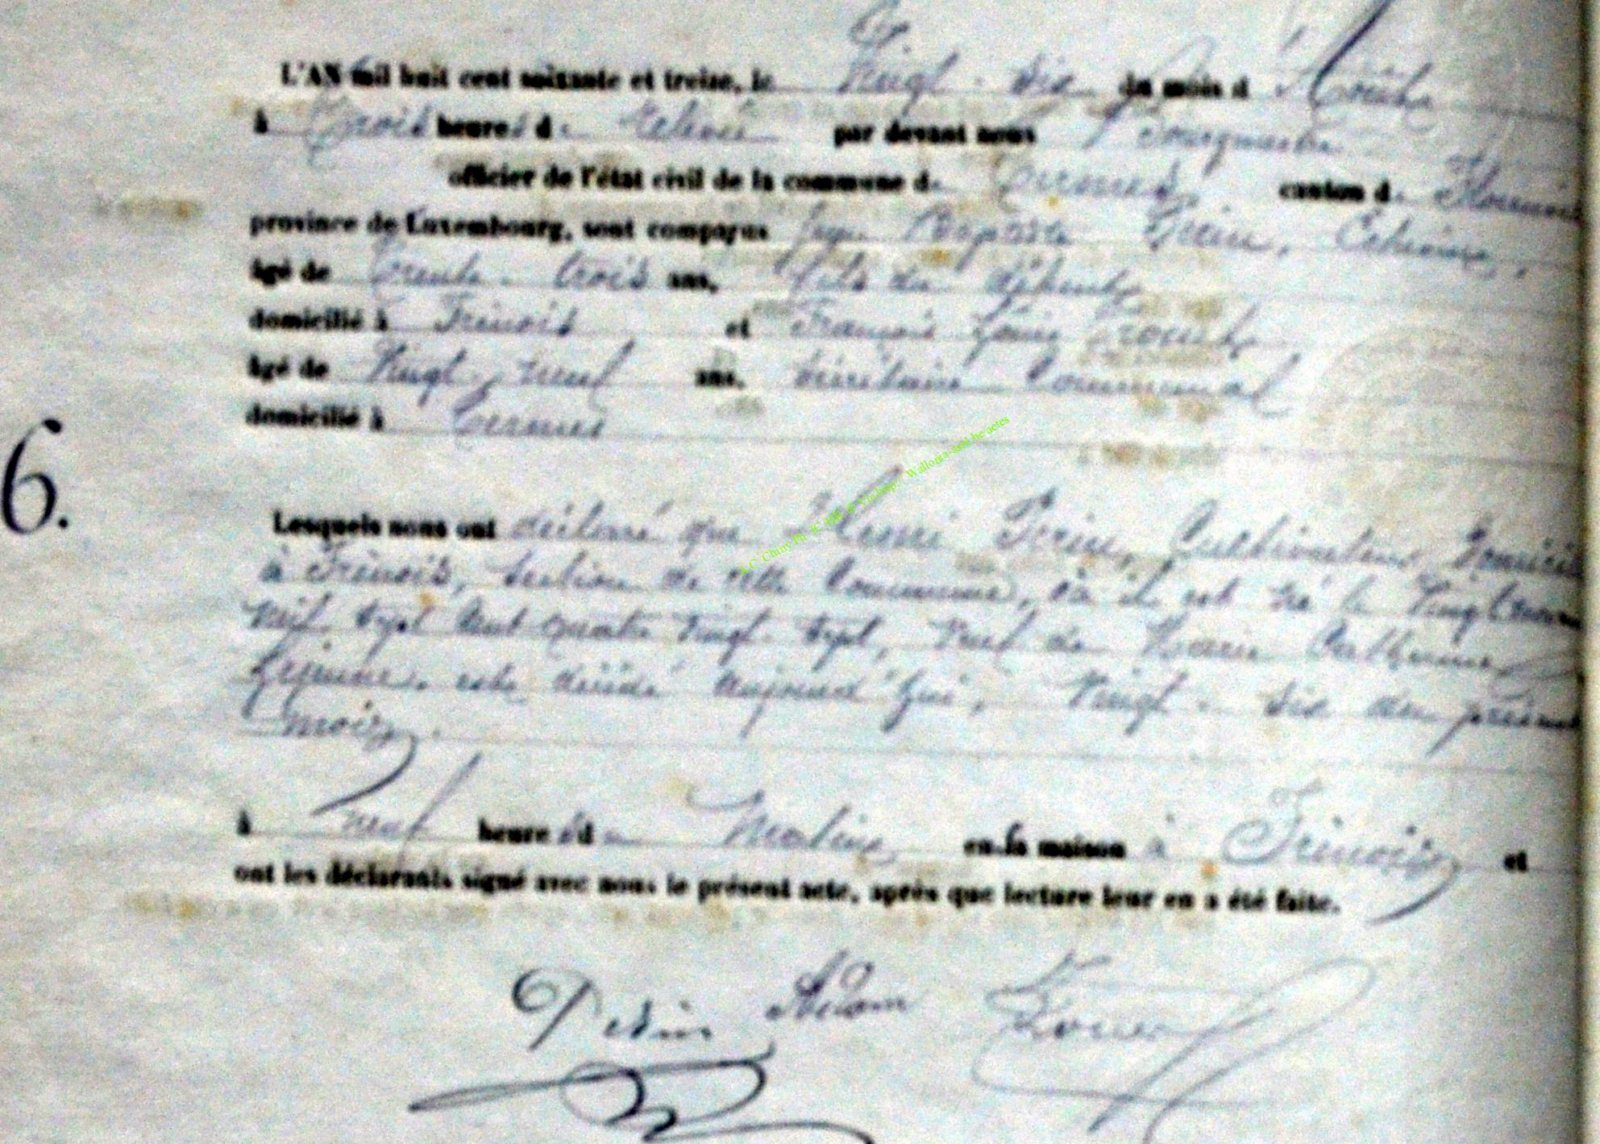 L'AN mil huit cent soixante et treize, le Vingt-six du mois d'
à Trois heures de relevée par devant nous Bourgmestre
officier de l'état civil de la commune de Termes canton de Florenville
province de Luxembourg, sont comparus Jean Baptiste
âgé de Trente-trois ans, fils du défunt
domicilié à Frenois et François
âgé de Vingt-neuf ans, Secrétaire Communal
domicilié à Termes
6.
Lesquels nous ont déclaré que Henri Perin, Cultivateur, domicilié
à Frenois, Section de cette Commune, où il est né le
Mil sept cent quatre vingt sept, Veuf de Marie Catherine
Lejeune, est décédé aujourd'hui, Vingt-six du présent
mois,
à neuf heures du Matin en la maison à Frenois, et
ont les déclarants signé avec nous le présent acte, après que lecture leur en a été faite.
Perin Adam